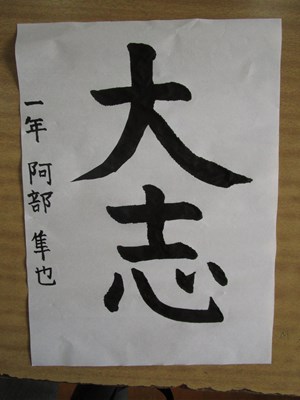 大志
一年 阿部 隼也